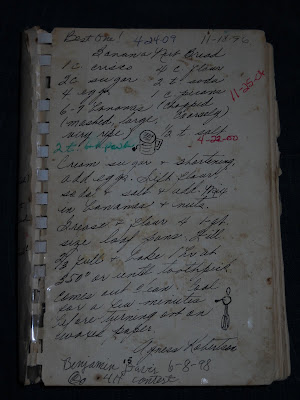 Best One! 4-24-09 11-18-96
Banana Nut Bread
1 c crisco 4 c flour
2 c sugar 2 t soda
4 eggs 1 c pecans
6-9 bananas (chopped
(mashed, large, coarsely)
very ripe) ½ t salt
11-25-04
4-22-00
2 t
Cream sugar & shortening,
add eggs. Sift flour
soda & salt & add. Mix
in bananas & nuts.
Grease & flour 4 1-qt.
size loaf pans. Fill
⅔ full & bake 1 hr at
350° or until toothpick
comes out clean. Cool
for a few minutes
before turning out on
waxed paper.
Agness Robertson
Benjamin's 6-8-98
4H contest